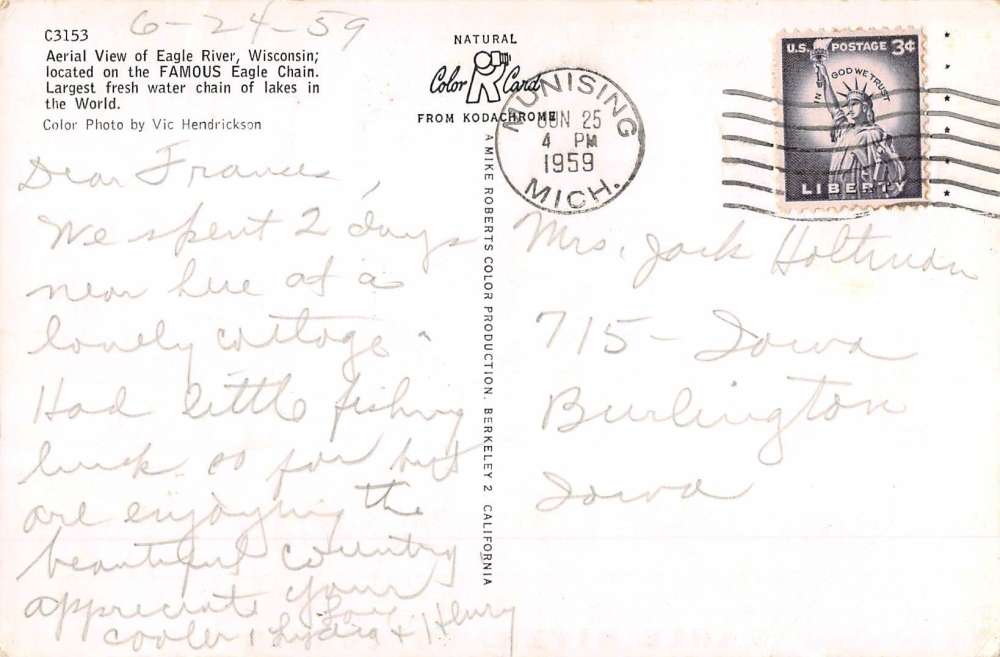 6-24-59
C3153
Aerial View of Eagle River, Wisconsin;
located on the FAMOUS Eagle Chain.
Largest fresh water chain of lakes in
the World.
Color Photo by Vic Hendrickson
NATURAL
Color Card
FROM KODACHROME
A MIKE ROBERTS COLOR PRODUCTION. BERKELEY 2 CALIFORNIA
MUNISING
JUN 25
4 PM
1959
MICH.
U.S. POSTAGE 3¢
IN GOD WE TRUST
LIBERTY
Dear Frances,
We spent 2 days
near here at a
lovely cottage.
Had little fishing
luck so far but
are enjoying the
beautiful country
appreciate your
cooler. Love
Lydia + Henry
Mrs. Jack Holtman
715 - Iowa
Burlington
Iowa